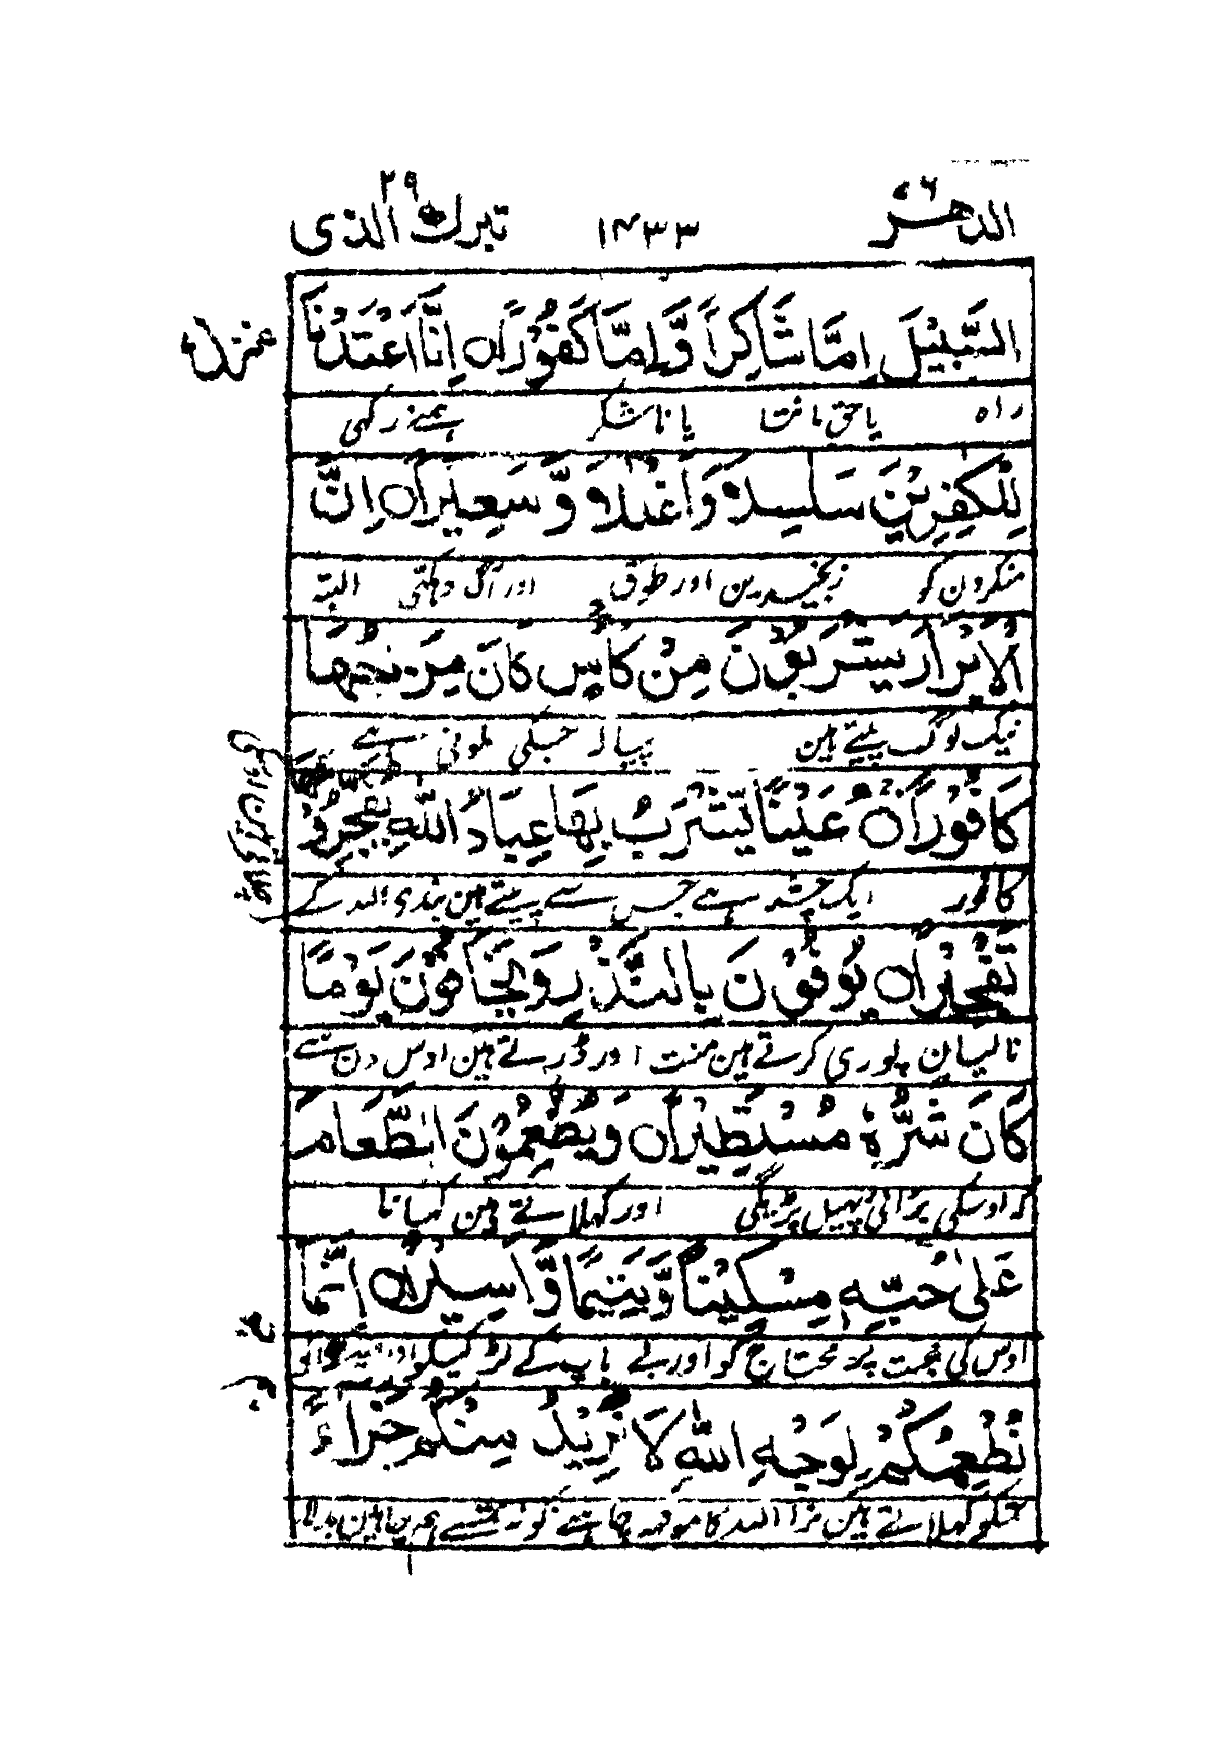 الدهر ٧٦
١٤٣٣
تبرك الذى ٢٩
السَّبِيْلَ اِمَّا شَاكِرًا وَّاِمَّا كَفُوْرًا ۝ اِنَّا اَعْتَدْنَا
راہ یا حق مانتا یا ناشکر ہمنے رکھی
لِلْكٰفِرِيْنَ سَلٰسِلَا۟ وَاَغْلٰلًا وَّسَعِيْرًا ۝ اِنَّ
منکرون کو زنجیرین اور طوق اور آگ دہکتی البتہ
الْاَبْرَارَ يَشْرَبُوْنَ مِنْ كَاْسٍ كَانَ مِزَاجُهَا
نیک لوگ پیتے ہین پیالہ جسکی ملونی ہے
كَافُوْرًا ۝ عَيْنًا يَّشْرَبُ بِهَا عِبَادُ اللّٰهِ يُفَجِّرُوْنَهَا
کافور ایک چشمہ ہے جس سے پیتے ہین بندی اللہ کے
تَفْجِيْرًا ۝ يُوْفُوْنَ بِالنَّذْرِ وَيَخَافُوْنَ يَوْمًا
نالیان پوری کرتے ہین منت اور ڈرتے ہین اوس دن سے
كَانَ شَرُّهٗ مُسْتَطِيْرًا ۝ وَيُطْعِمُوْنَ الطَّعَامَ
کہ اوسکی برائی پھیل پڑیگی اور کھلاتے ہین کھانا
عَلٰى حُبِّهٖ مِسْكِيْنًا وَّيَتِيْمًا وَّاَسِيْرًا ۝ اِنَّمَا
اوس کی محبت پر محتاج کو اور بے باپ کے لڑکیکو اور
نُطْعِمُكُمْ لِوَجْهِ اللّٰهِ لَا نُرِيْدُ مِنْكُمْ جَزَآءً
تمکو کھلاتے ہین نرا اللہ کا مونہہ چاہنے کو نہ تمسے ہم چاہین بدلا